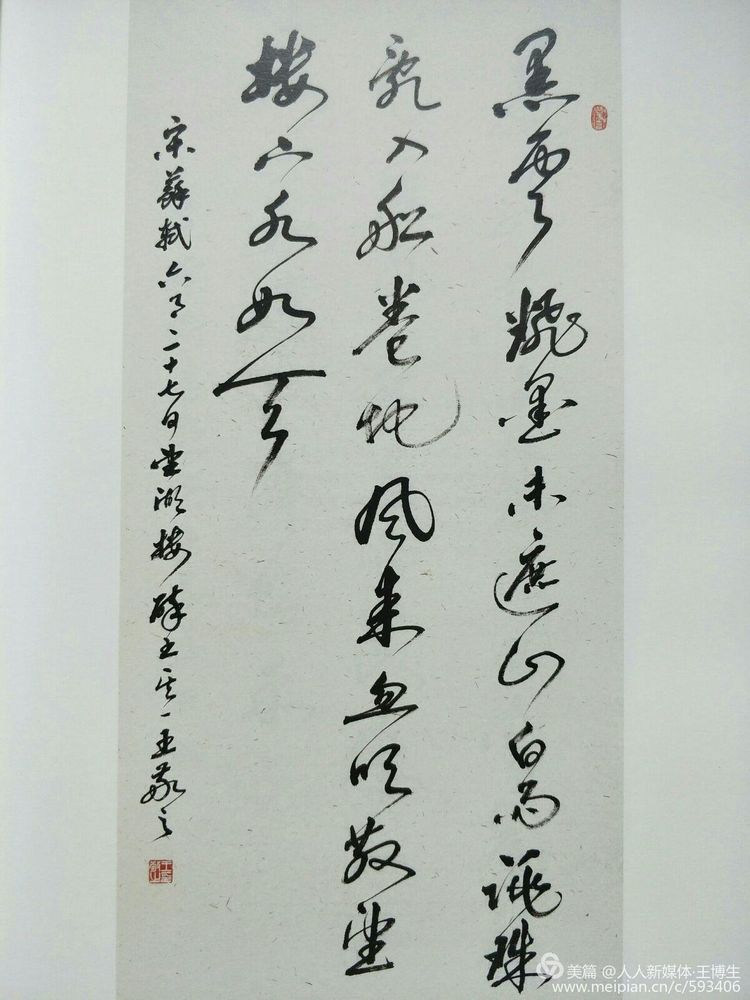 黑雲翻墨未遮山白雨跳珠
亂入船卷地風來忽吹散望
樓下水如天
宋蘇軾六月二十七日望湖樓醉書其一王敬之
美篇 @人人新媒体·王博生
www.meipian.cn/c/593406